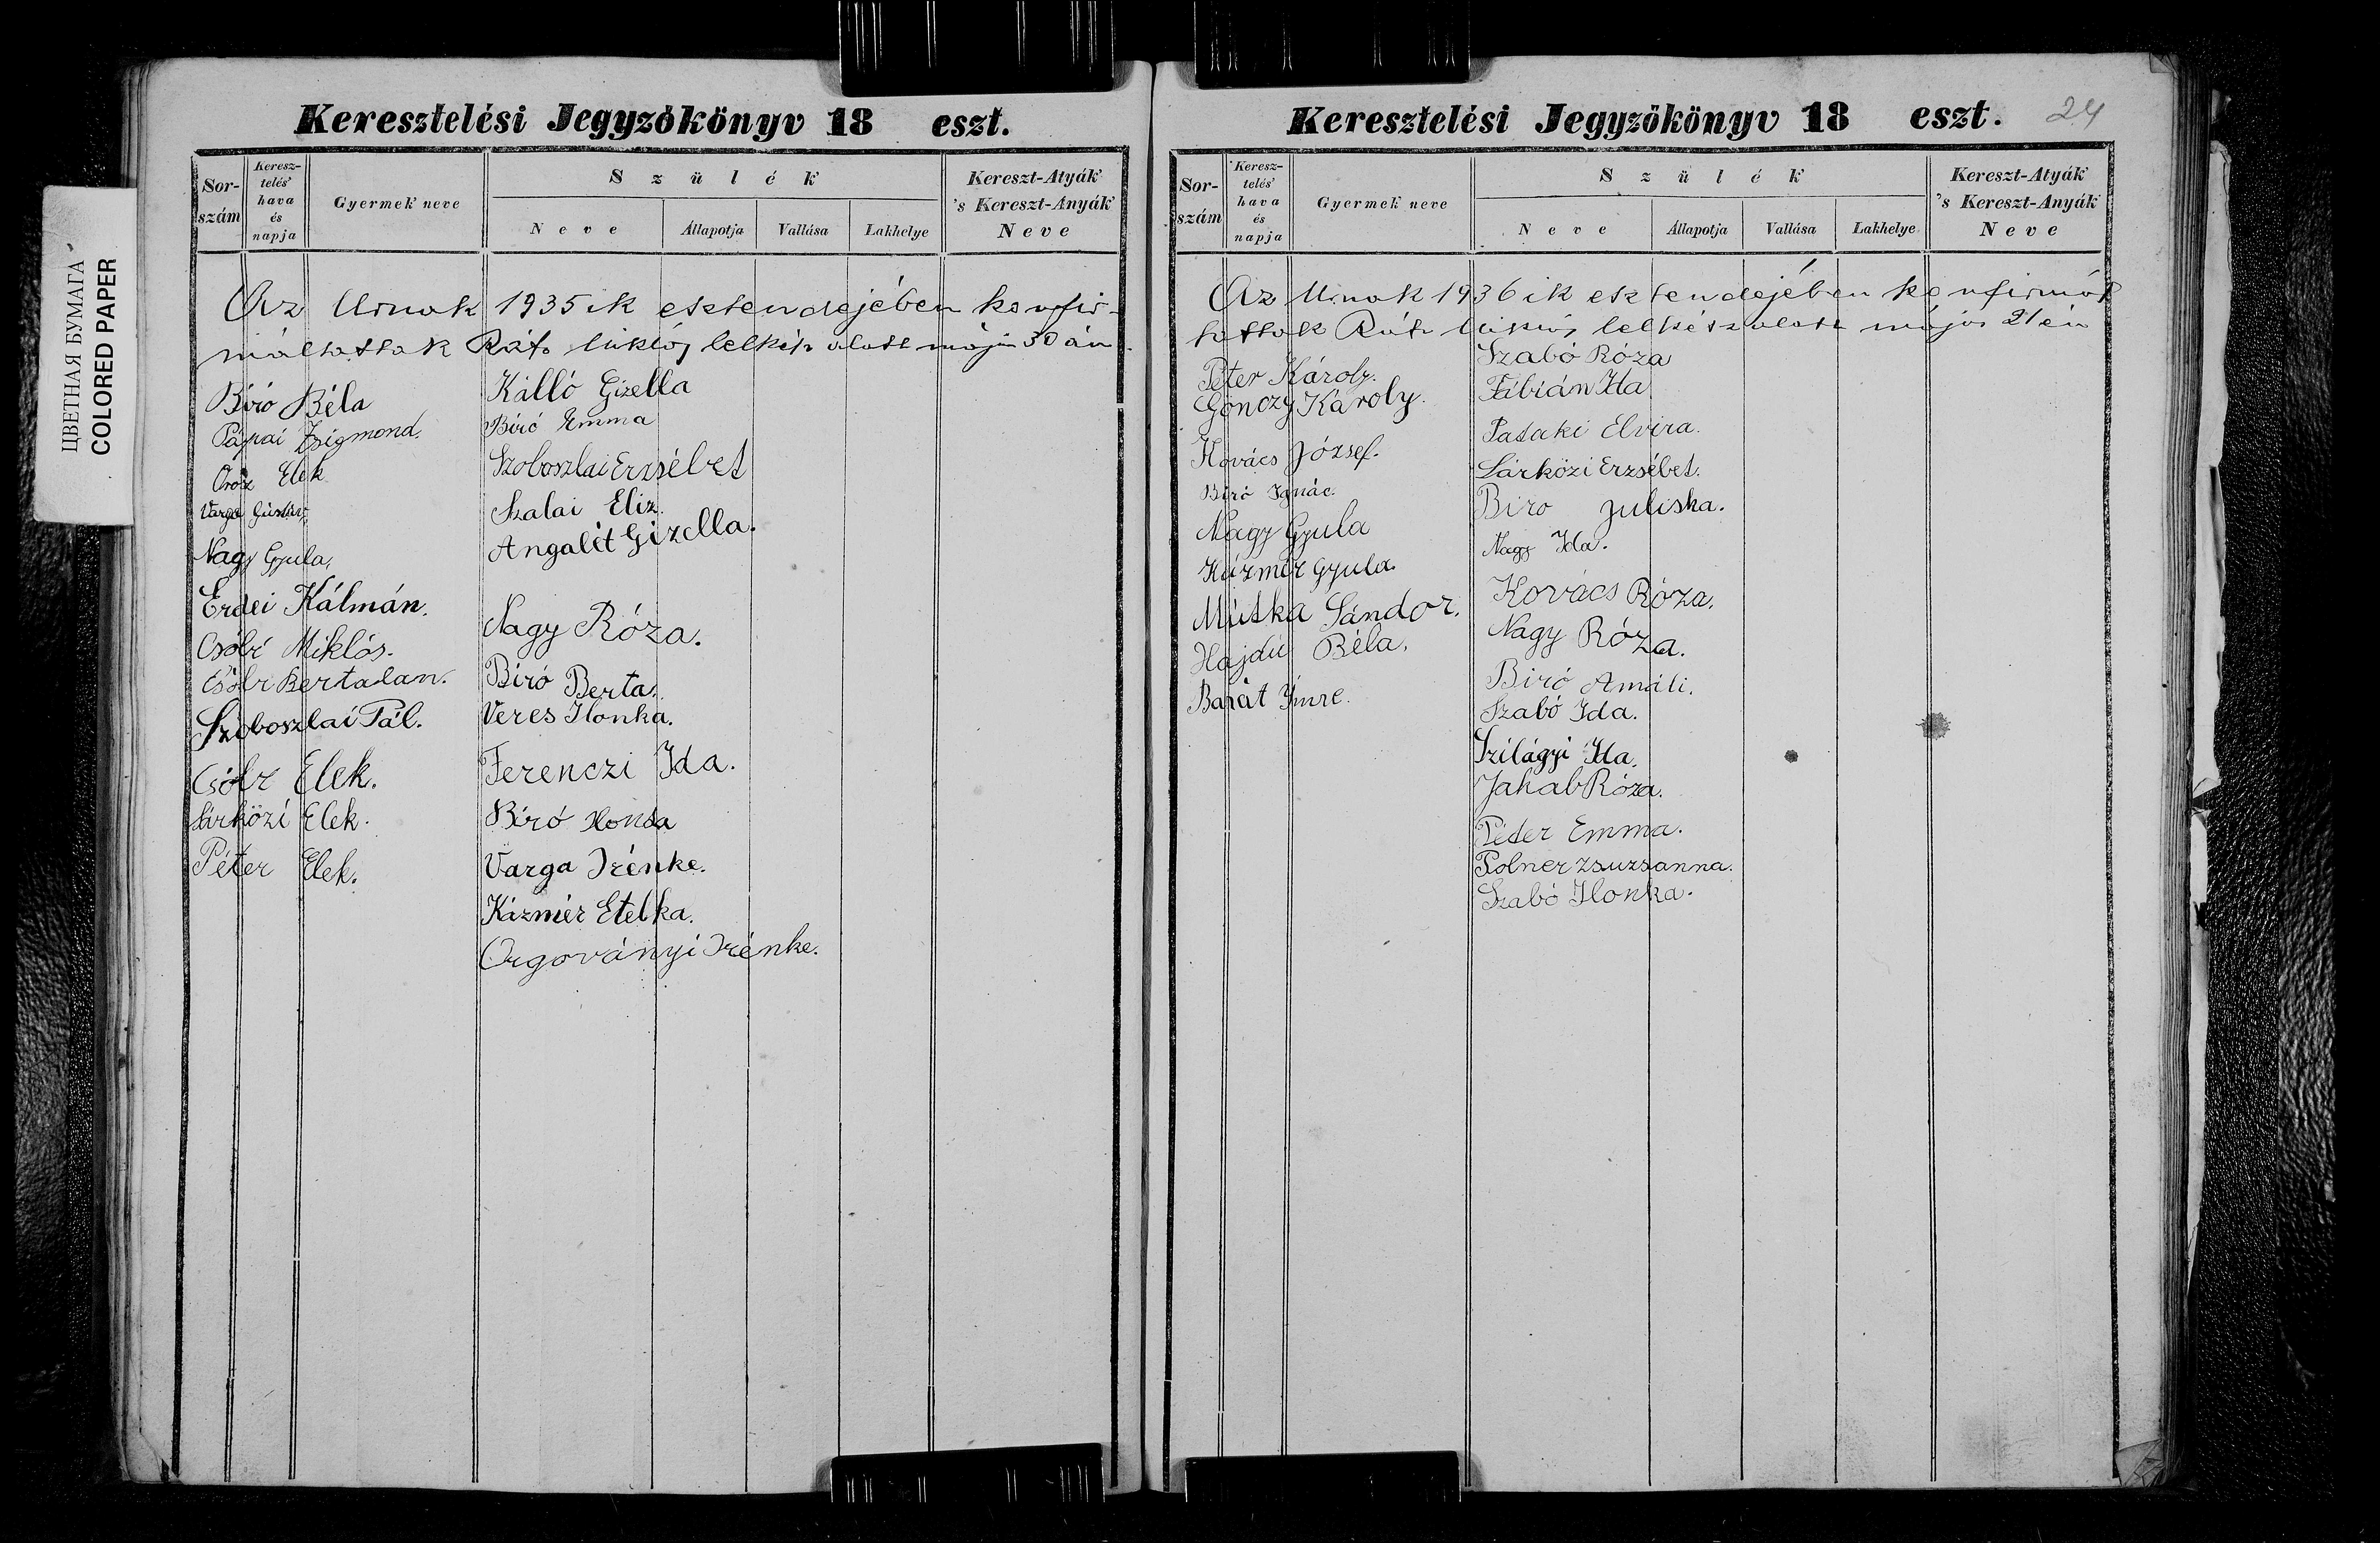 ЦВЕТНАЯ БУМАГА
COLORED PAPER
Keresztelési Jegyzőkönyv 18 eszt.
Sor-szám
Keresz-telés' hava és napja
Gyermek neve
Szülék
Neve
Állapotja
Vallása
Lakhelye
Kereszt-Atyák 's Kereszt-Anyák Neve
Az Urnak 1935 ik esztendejében konfir-
máltattak Rátz lelkész alatt május 30 án.
Biró Béla
Pápai Zsigmond.
Orosz Elek
Varga Gusztáv,
Nagy Gyula,
Erdei Kálmán.
Csőbr Miklós.
Csőbr Bertalan.
Szoboszlai Pál.
Csőbr Elek.
Sárközi Elek.
Péter Elek.
Kálló Gizella
Biró Emma
Szoboszlai Erzsébet
Szalai Eliz.
Angalit Gizella.
Nagy Róza.
Biró Berta.
Veres Ilonka.
Ferenczi Ida.
Biró Ilonka
Varga Irénke.
Kázmér Etelka.
Orgoványi Irénke.
Keresztelési Jegyzőkönyv 18 eszt.
24
Sor-szám
Keresz-telés' hava és napja
Gyermek neve
Szülék
Neve
Állapotja
Vallása
Lakhelye
Kereszt-Atyák 's Kereszt-Anyák Neve
Az Urnak 1936 ik esztendejében konfirmál
tattak lelkész alatt május 21 én
Péter Károly.
Gönczy Károly.
Kovács József.
Biró Ignác.
Nagy Gyula
Kázmér Gyula.
Mutka Sándor.
Hajdú Béla.
Barát Imre.
Szabó Róza
Fábián Ida
Pataki Elvira.
Sárközi Erzsébet.
Biro Juliska.
Nagy Ida.
Kovács Róza.
Nagy Róza.
Biró Amáli.
Szabó Ida.
Szilágyi Ida.
Jakab Róza.
Péter Emma.
Polner Zsuzsanna.
Szabó Ilonka.